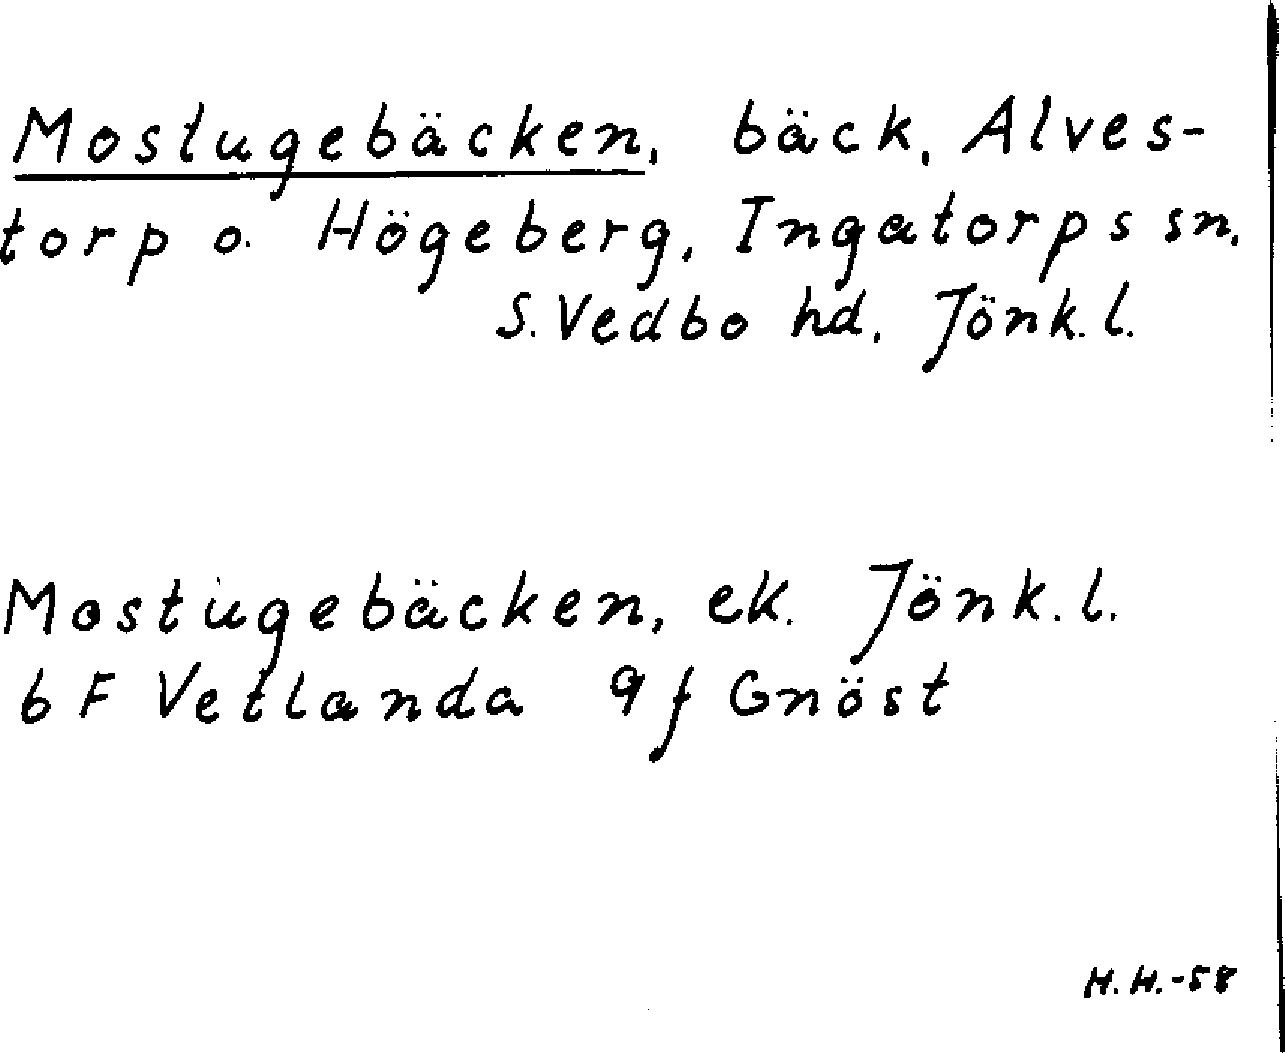 Mostugebäcken, bäck, Alves-
torp o. Högeberg, Ingatorps sn,
S. Vedbo hd, Jönk. l.
Mostugebäcken, ek. Jönk. l.
6 F Vetlanda 9 f Gnöst
H. H. -58